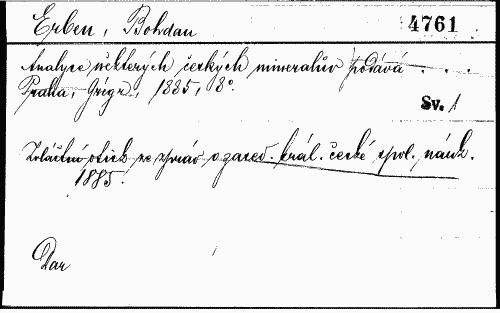 Erben, Bohdan
4761
Analyse některých českých mineralův podává . . .
Praha, Grégr, 1885, 8°.
Sv. 1
Zvláštní otisk ze zpráv o zased. král. české spol. náuk.
1885.
Dar